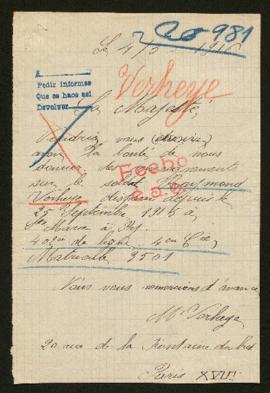 20981
Le 4/5 1916
A
Pedir informes
Que se haga así
Devolver
Verheye
Sa Majesté,
Voudriez vous
avoir la bonté de nous
donner des renseignements
sur le soldat Raymond
Verheye disparu depuis le
25 Septembre 1915 à
Ste Marie à Py.
Fecho
40 de ligne 4em Cie
Matricule 3501
Vous vous remercions d'avance
Mr Verheye
20 rue de la
Paris XVIII